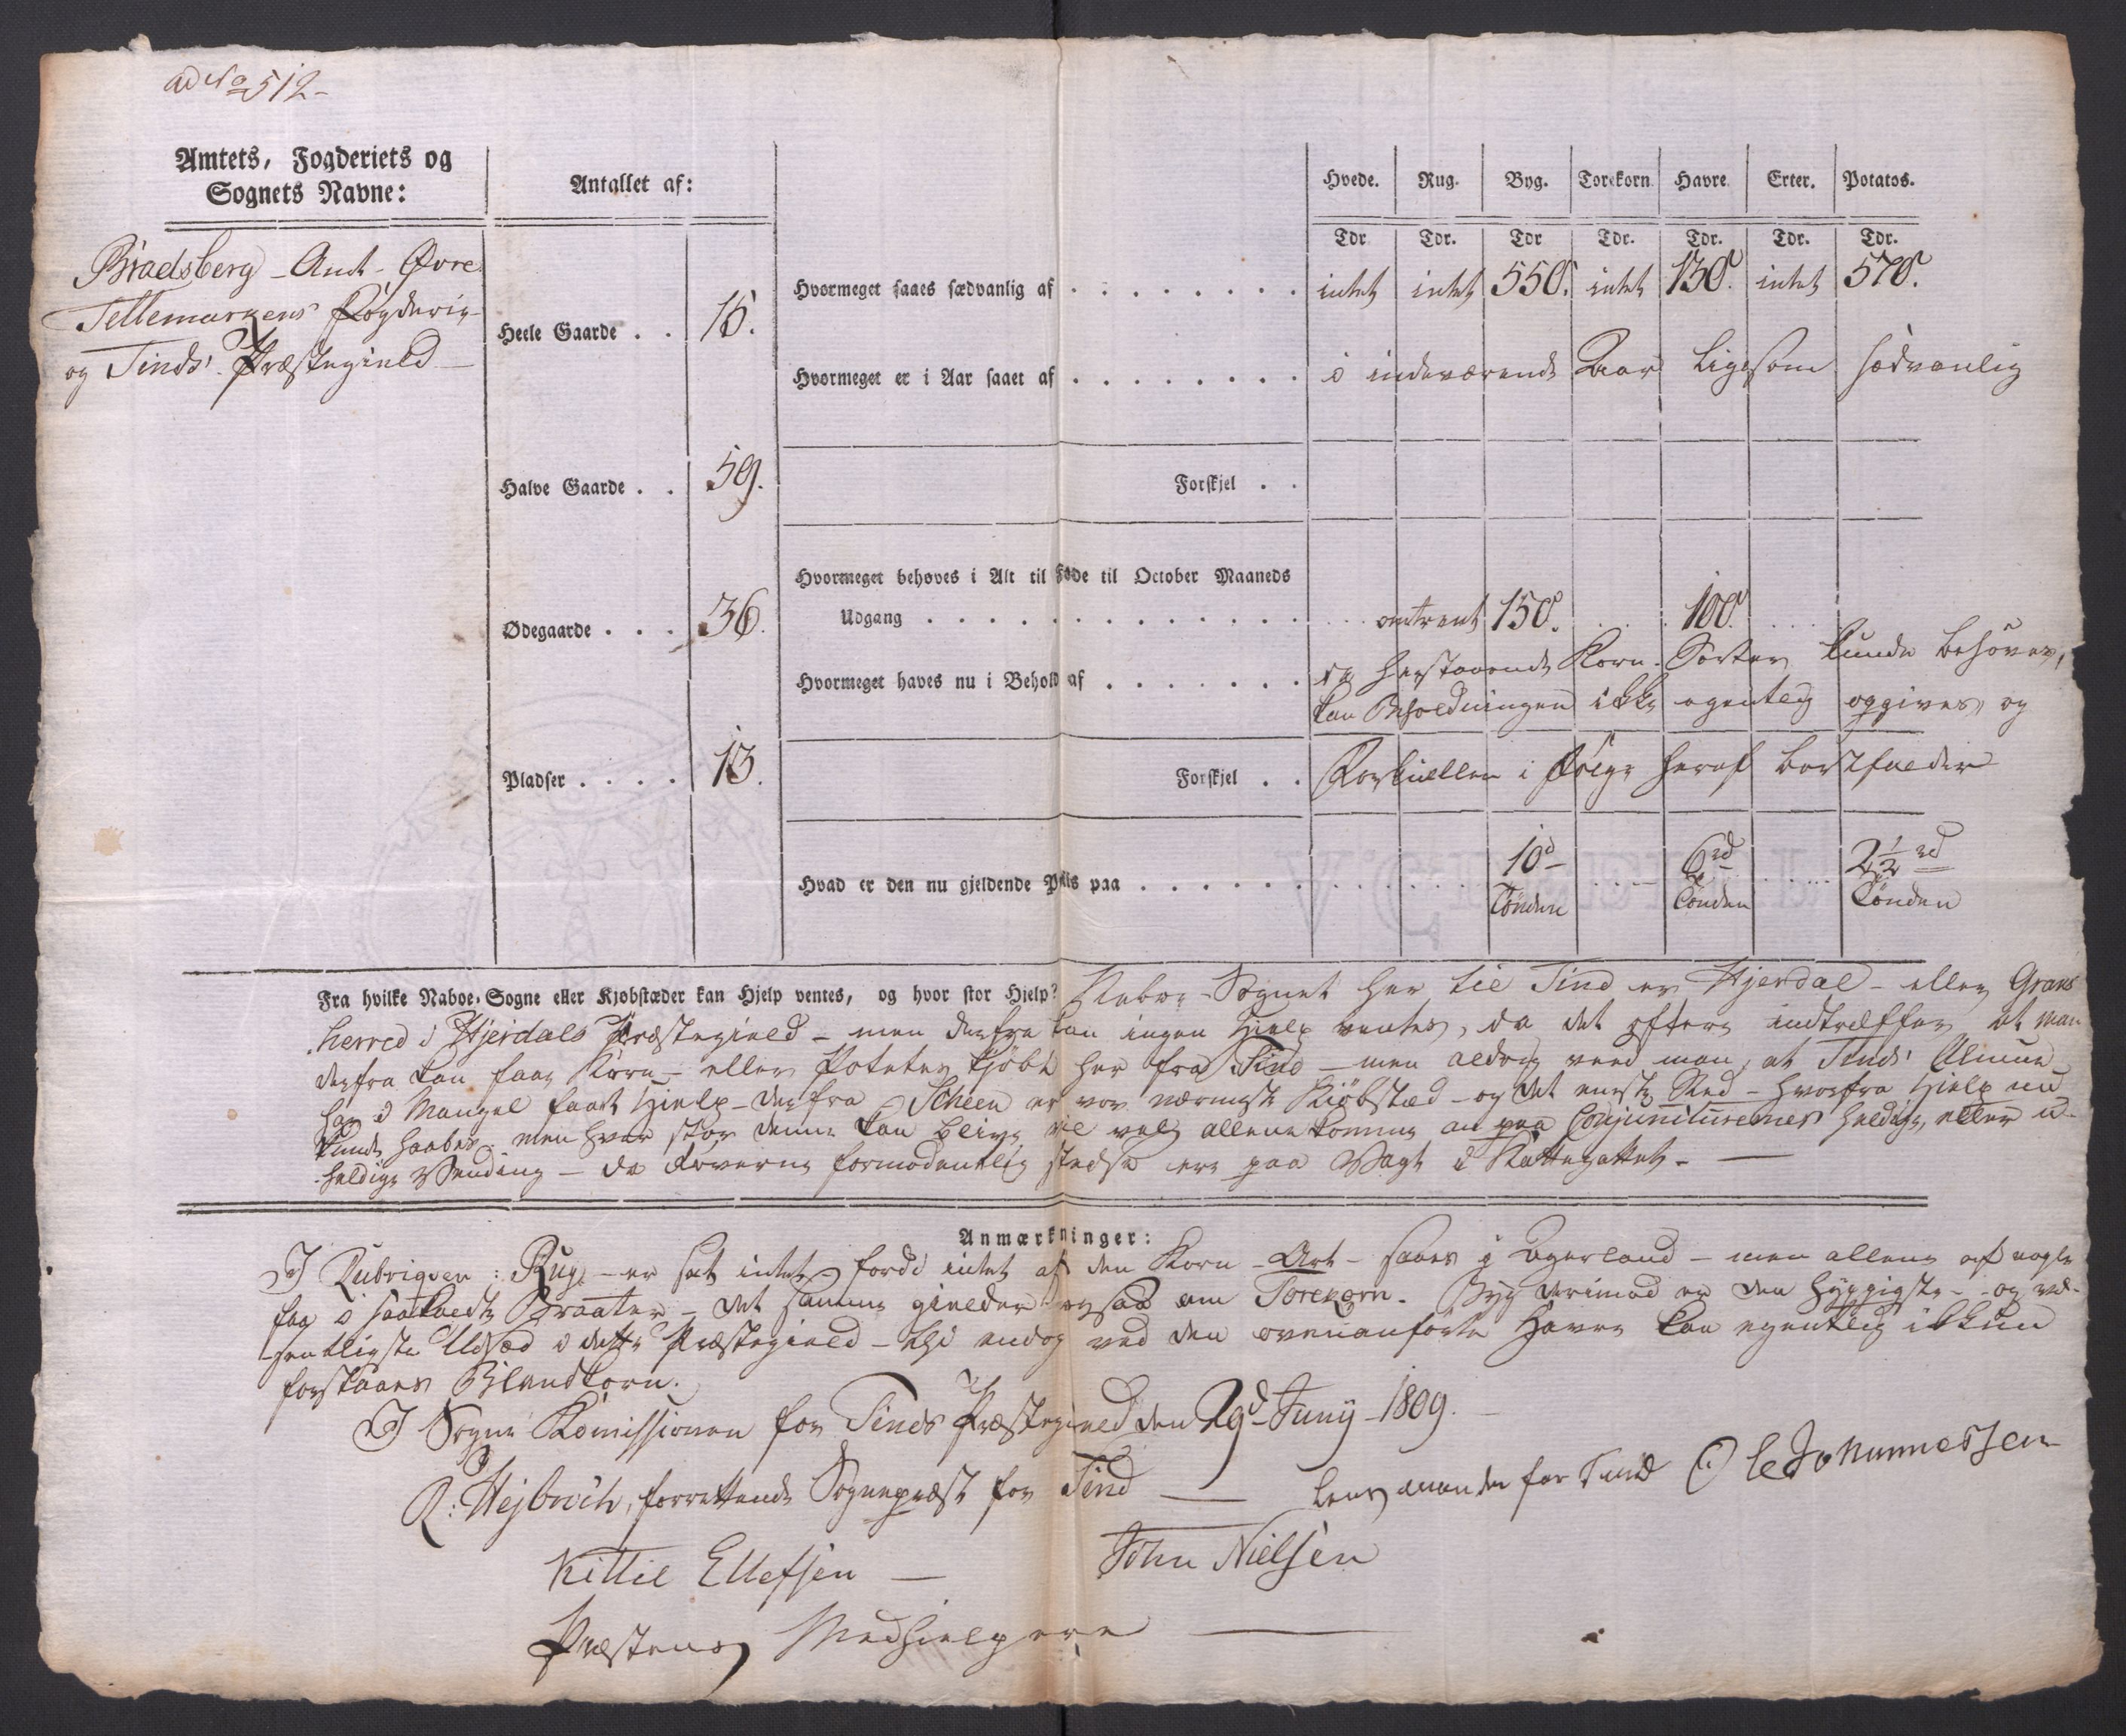 ad No 512-
Amtets, Fogderiets og
Sognets Navne:
Antallet af:
Hvede. Rug. Byg. Torekorn Havre Erter. Potatos.
Tdr Tdr. Tdr Tdr. Tdr. Tdr. Tdr.
Bradsberg - Amt - Øvre
Tellemarkens Fogderie
og Tinds Præstegield
Heele Gaarde . . 15.
Halve Gaarde . . 59.
Ødegaarde . . . 36.
Pladser . . . . 13.
Hvormeget saaes sædvanlig af intet intet 550. intet 130. intet 570.
Hvormeget er i Aar saaet af i indeværende Aar ligesom sædvanlig
Forskjel . .
Hvormeget behøves i Alt til Føde til October Maaneds
Udgang omtrent 150. 100.
Hvormeget haves nu i Behold af da herstaaende Korn-Sorter kunde behøves,
kan Beholdningen ikke egentlig opgives, og
Forskjel . . Forskiellen i Følge heraf bortfalder
Hvad er den nu gjeldende Priis paa 10 rd 6 rd 2½ rd
Tönden Tönden Tönden
Fra hvilke Naboe-Sogne eller Kjobstæder kan Hjelp ventes, og hvor stor Hjelp? Naboe-Sognet her til Tind er Hjerdal - eller Grans
herred i Hjerdals Præstegield - men derfra kan ingen Hielp ventes, da det oftere indtræffer, at man
derfra kan faae Korn - eller Poteter kjøbt her fra Tind - men aldrig veed man, at Tinds Almue
har i Mangel faaet Hielp - derfra Scheen er vor nærmeste Kiöbstæd - og det eneste Sted - hvorfra Hielp
kunde haabes. men hvor stor denne kan blive vil vel allene komme an paa Conjuncturernes heldige, eller u-
heldige Vending - da Røverne formodentlig stedse ere paa Vagt i Kattegattet. -
Anmærkninger:
I Rubriqven: Rug - er sat intet, fordi intet af den Korn - Art - saaes i Agerland - men allene af nogle
faa i saakaldte Braater - det samme gielder ogsaa om Torekorn. Byg derimod er den hyppigste - og væ-
sentligste Udsæd i dette Præstegield - thi endog ved den ovenanførte Havre kan egentlig ikkun
forstaaes Blandkorn.
I Sogne Komissionen for Tinds Præstegield den 29d Junij 1809.
R: Hejbroch, forrettende Sognepræst for Tind
Lensmanden for Tind Ole Johannessen
Kittil Ellefsen - John Nielsen
Præstens Medhielpere